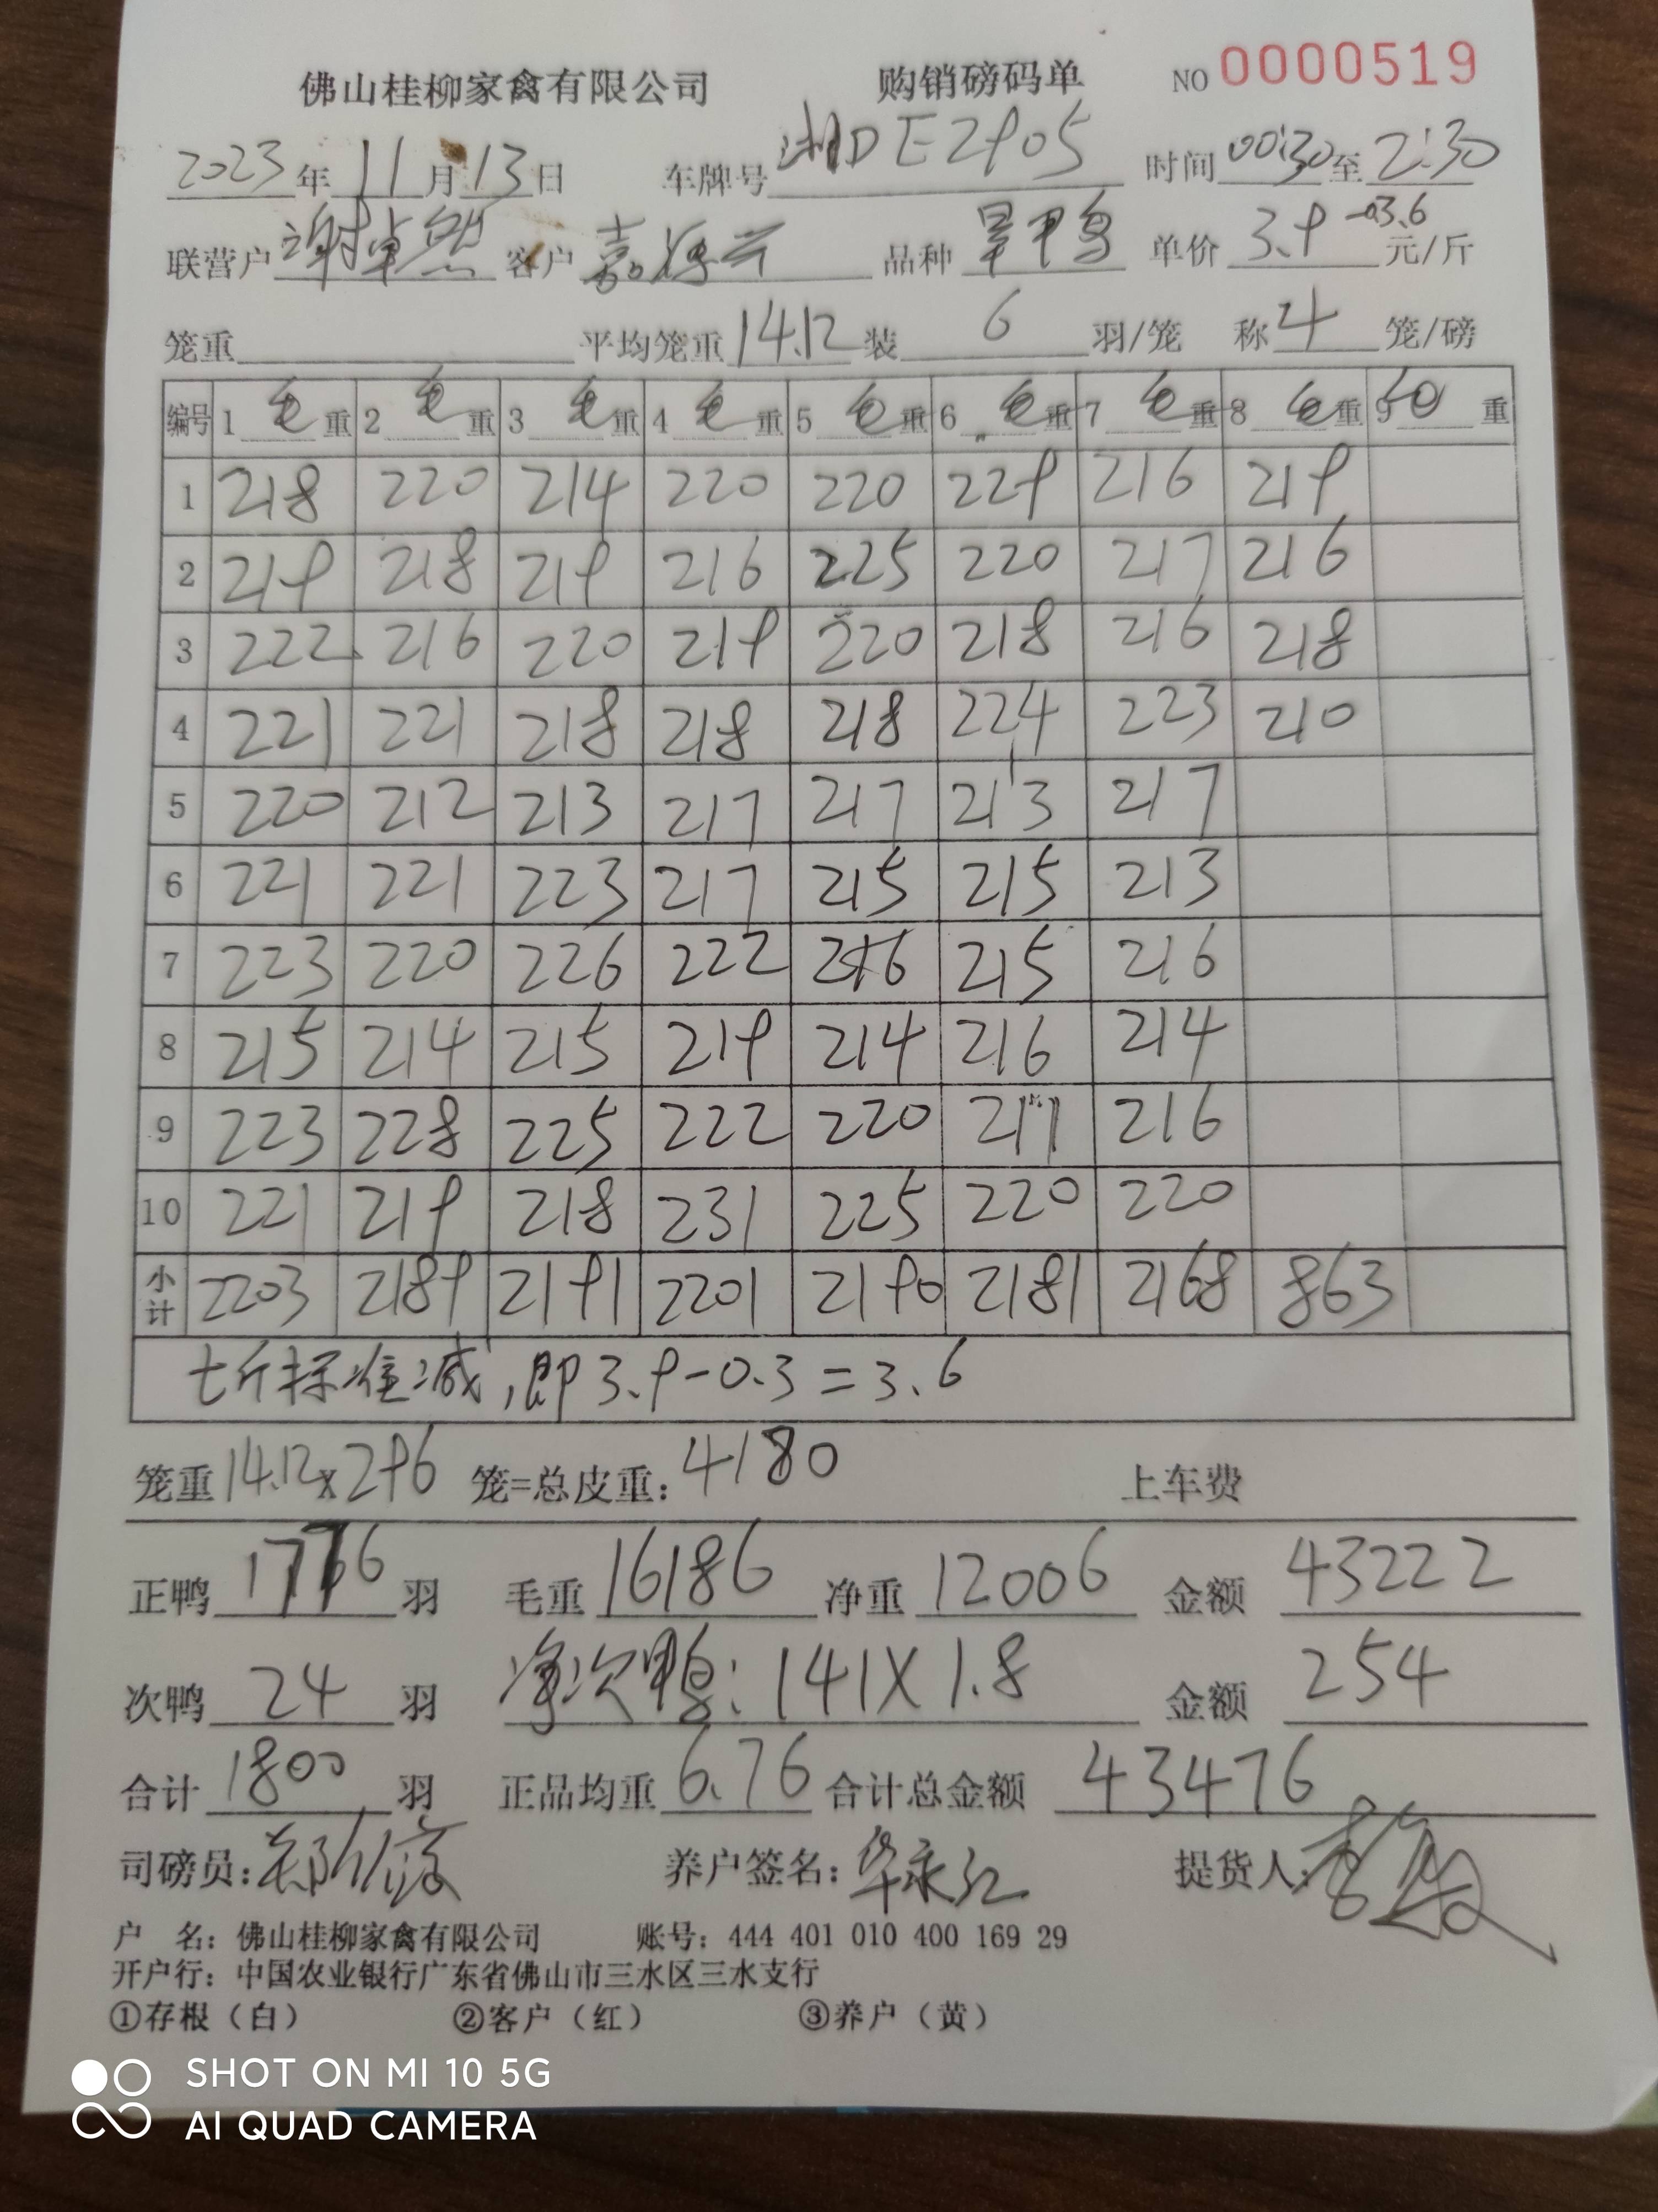 佛山桂柳家禽有限公司 购销磅码单 NO 0000519
2023年 11月 13日 车牌号 湘DE2905 时间 00:30 至 2:30
联营户 谢卓然 客户 嘉 品种 旱鸭 单价 3.9 -0.3 3.6 元/斤
笼重 平均笼重 14.12 装 6 羽/笼 称 4 笼/磅
编号 1 毛重 2 毛重 3 毛重 4 毛重 5 毛重 6 毛重 7 毛重 8 毛重 9 重
1 218 220 214 220 220 229 216 219
2 219 218 219 216 225 220 217 216
3 222 216 220 219 220 218 216 218
4 221 221 218 218 218 224 223 210
5 220 212 213 217 217 213 217
6 221 221 223 217 215 215 213
7 223 220 226 222 216 215 216
8 215 214 215 219 214 216 214
9 223 228 225 222 220 211 216
10 221 219 218 231 225 220 220
小计 2203 2189 2191 2201 2190 2181 2168 863
七斤标准减，即3.9-0.3=3.6
笼重 14.12x296 笼=总皮重：4180 上车费
正鸭 1776 羽 毛重 16186 净重 12006 金额 43222
次鸭 24 羽 净次鸭：141X1.8 金额 254
合计 1800 羽 正品均重 6.76 合计总金额 43476
司磅员： 养户签名：华永江 提货人：
户 名：佛山桂柳家禽有限公司 账号：444 401 010 400 169 29
开户行：中国农业银行广东省佛山市三水区三水支行
①存根（白） ②客户（红） ③养户（黄）
SHOT ON MI 10 5G
AI QUAD CAMERA